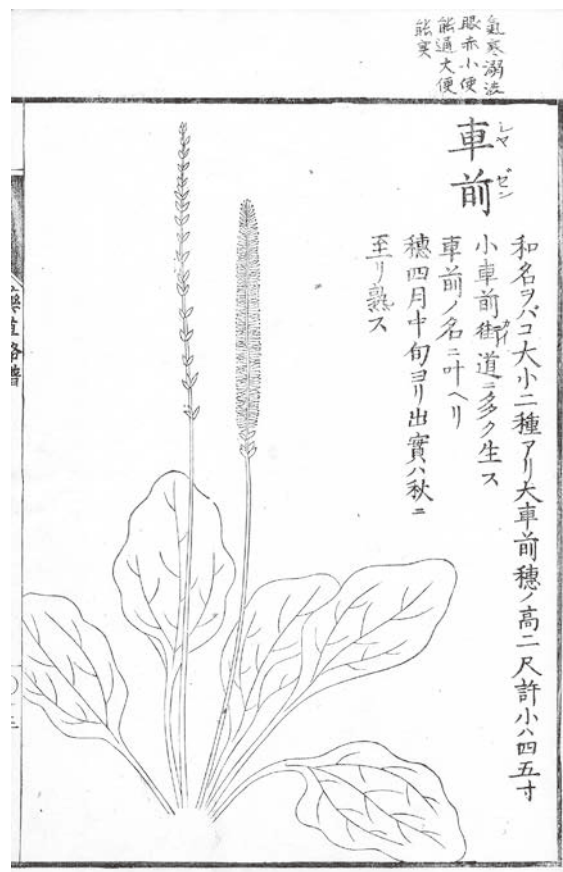 氣寒溺澁
眼赤小便
能通大便
能實
車前
シヤゼン
和名ヲバコ大小二種アリ大車前穗ノ高二尺許小ハ四五寸
小車前街道ニ多ク生ス
カイ
車前ノ名ニ叶ヘリ
穗四月中旬ヨリ出實ハ秋ニ
至リ熟ス